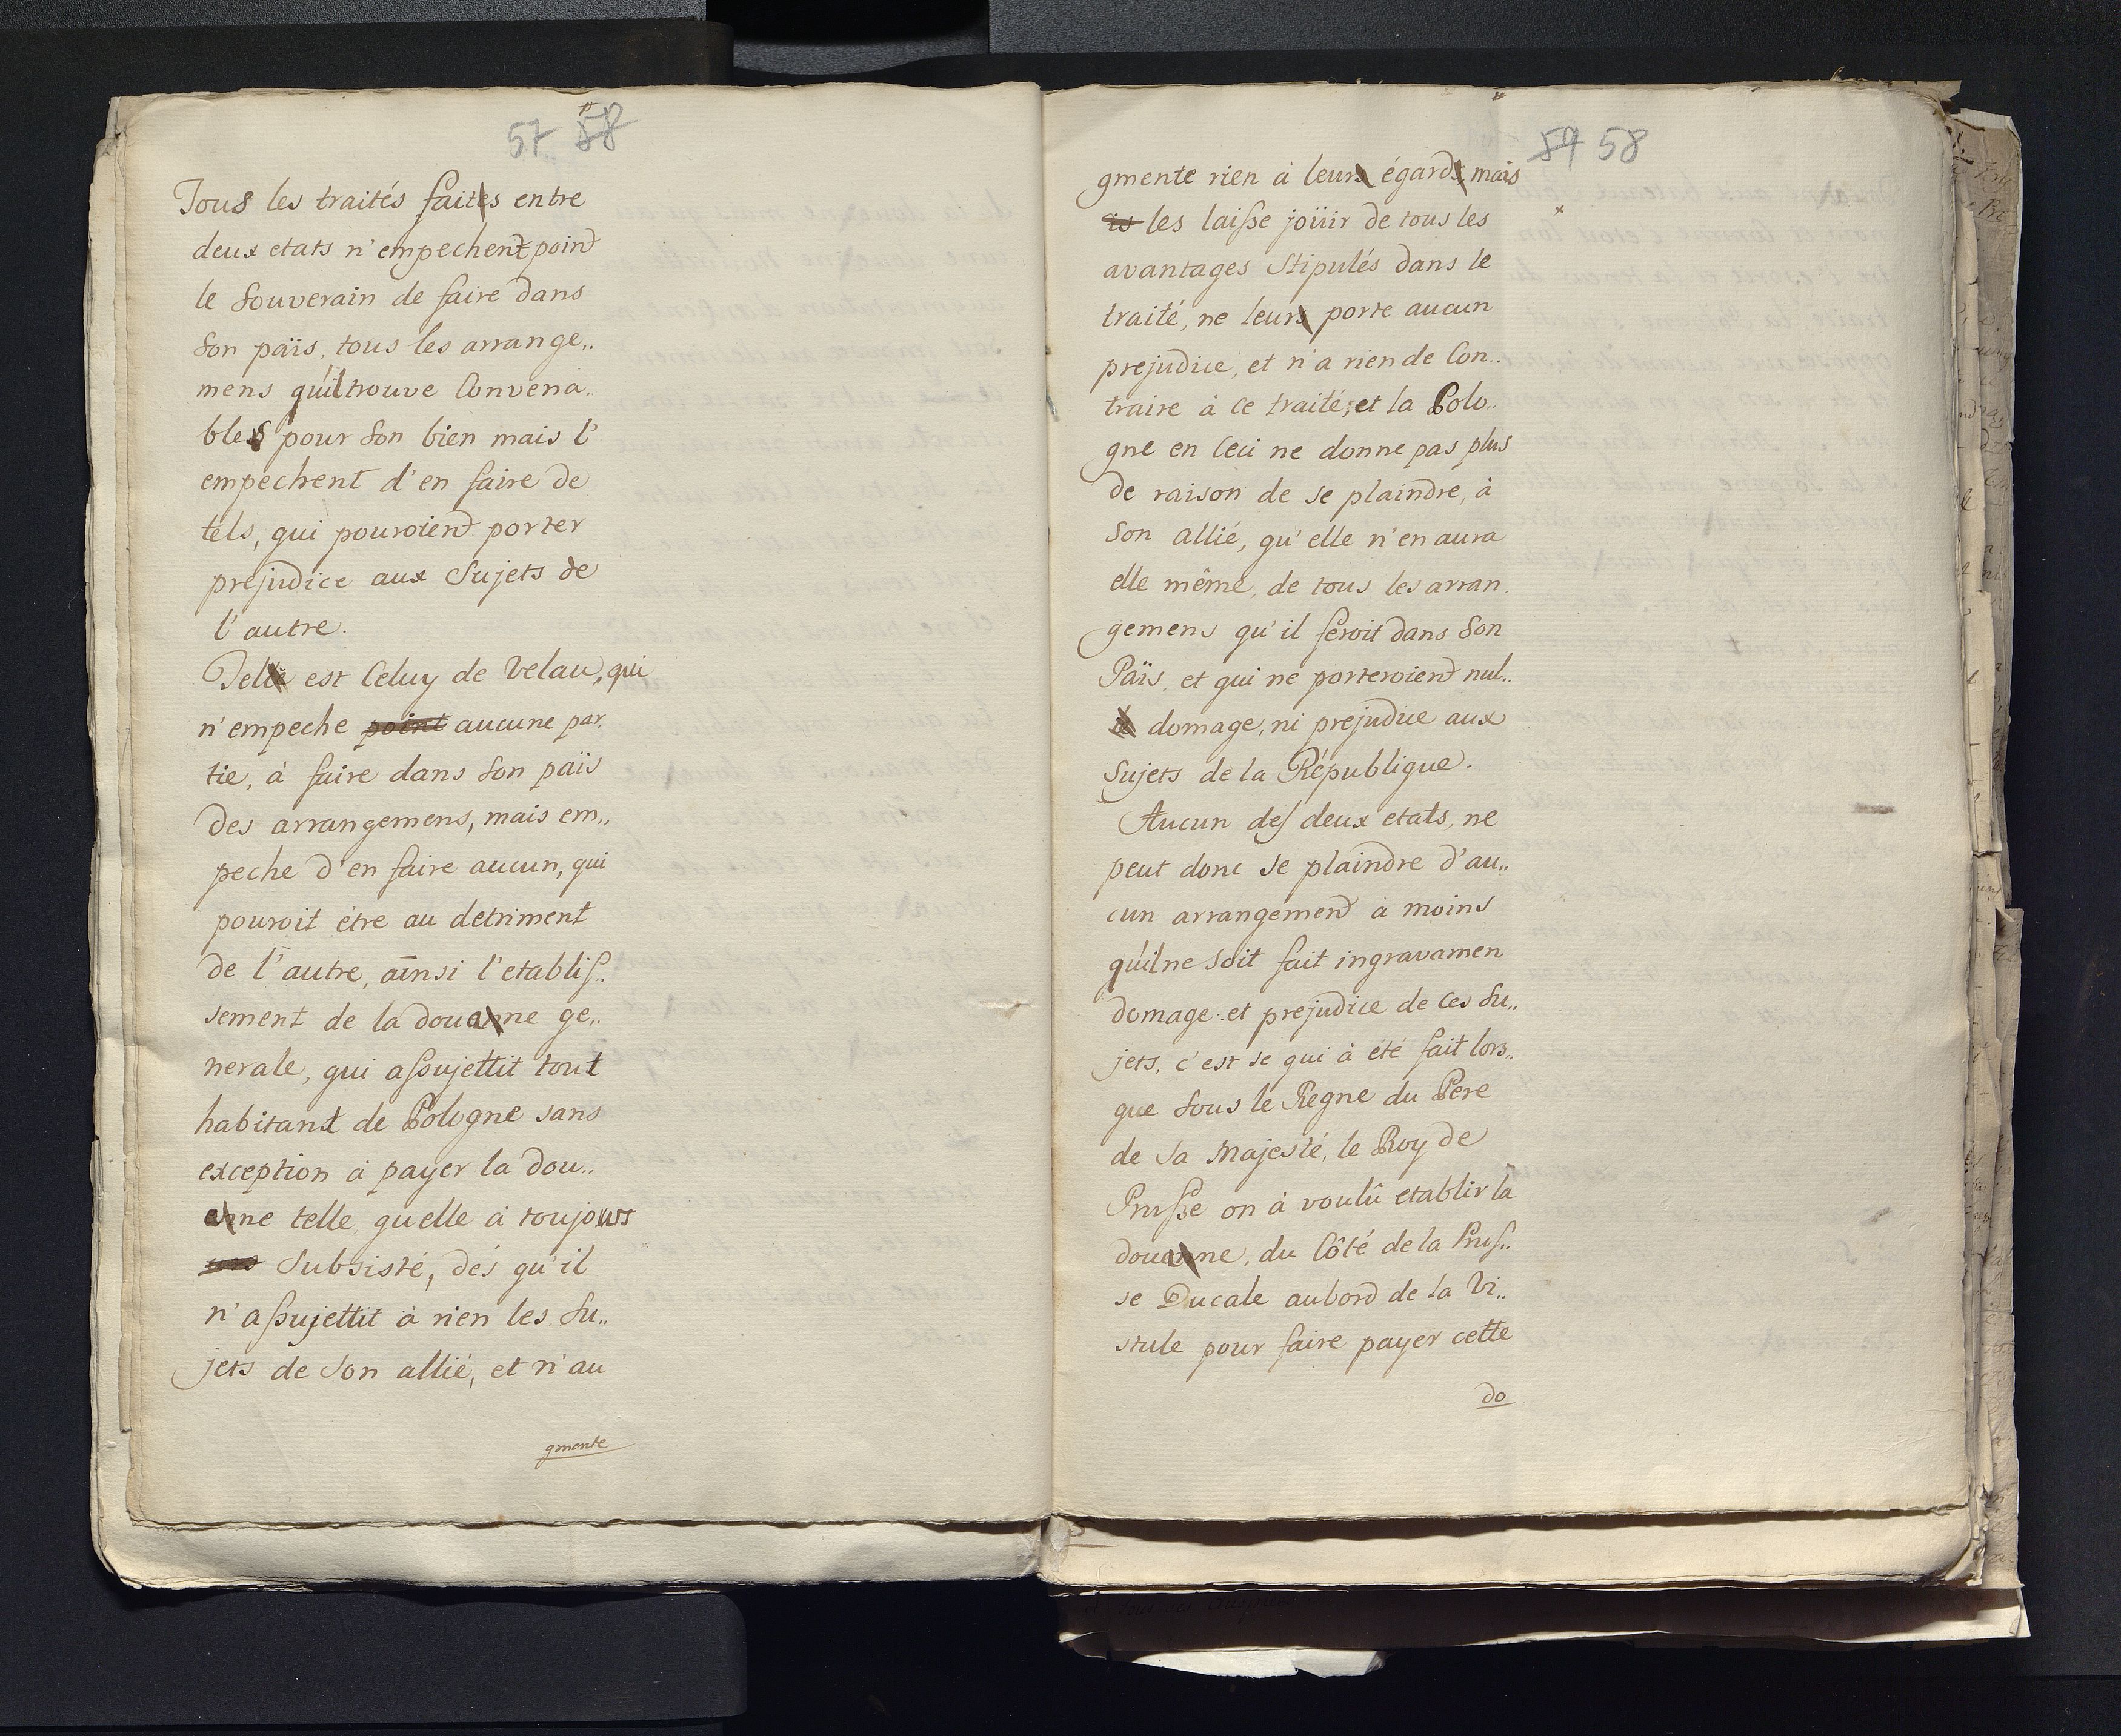 57 58
Tous les traités faites entre
deux etats n'empechent point
le Souverain de faire dans
Son païs, tous les arrange„
mens qu'il trouve Convena„
bles pour Son bien mais l'
empechent d'en faire de
tels, qui pouroient porter
prejudice aux Sujets de
l'autre.
Telle est Celuy de Velau, qui
n'empeche point aucune par„
tie, à faire dans Son païs
des arrangemens, mais em„
peche d'en faire aucun, qui
pouroit étre au detriment
de l'autre, ainsi l'etablis„
sement de la douanne ge„
nerale, qui assujettit tout
habitant de Pologne sans
exception à payer la dou„
anne telle, quelle à toujours
urs Subsisté, dés qu'il
n'assujettit à rien les Su„
jets de Son allié, et n'au
gmente
59 58
gmente rien à leurs égards, mais
is les laisse joüir de tous les
avantages Stipulés dans le
traité, ne leurs porte aucun
prejudice, et n'a rien de Con„
traire à ce traité; et la Polo„
gne en Ceci ne donne pas plus
de raison de se plaindre, à
Son allié, qu'elle n'en aura
elle même, de tous les arran„
gemens qu'il feroit dans Son
Païs, et qui ne porteroient nul„
le domage, ni prejudice aux
Sujets de la République.
Aucun des deux etats, ne
peut donc se plaindre d'au„
cun arrangement à moins
qu'il ne soit fait ingravamen
domage et prejudice de Ces Su„
jets, c'est se qui à été fait lors„
que Sous le Regne du Pere
de Sa Majesté, le Roy de
Prusse on à voulû etablir la
douanne, du Côté de la Prus„
se Ducale au bord de la Vi„
stule pour faire payer cette
do